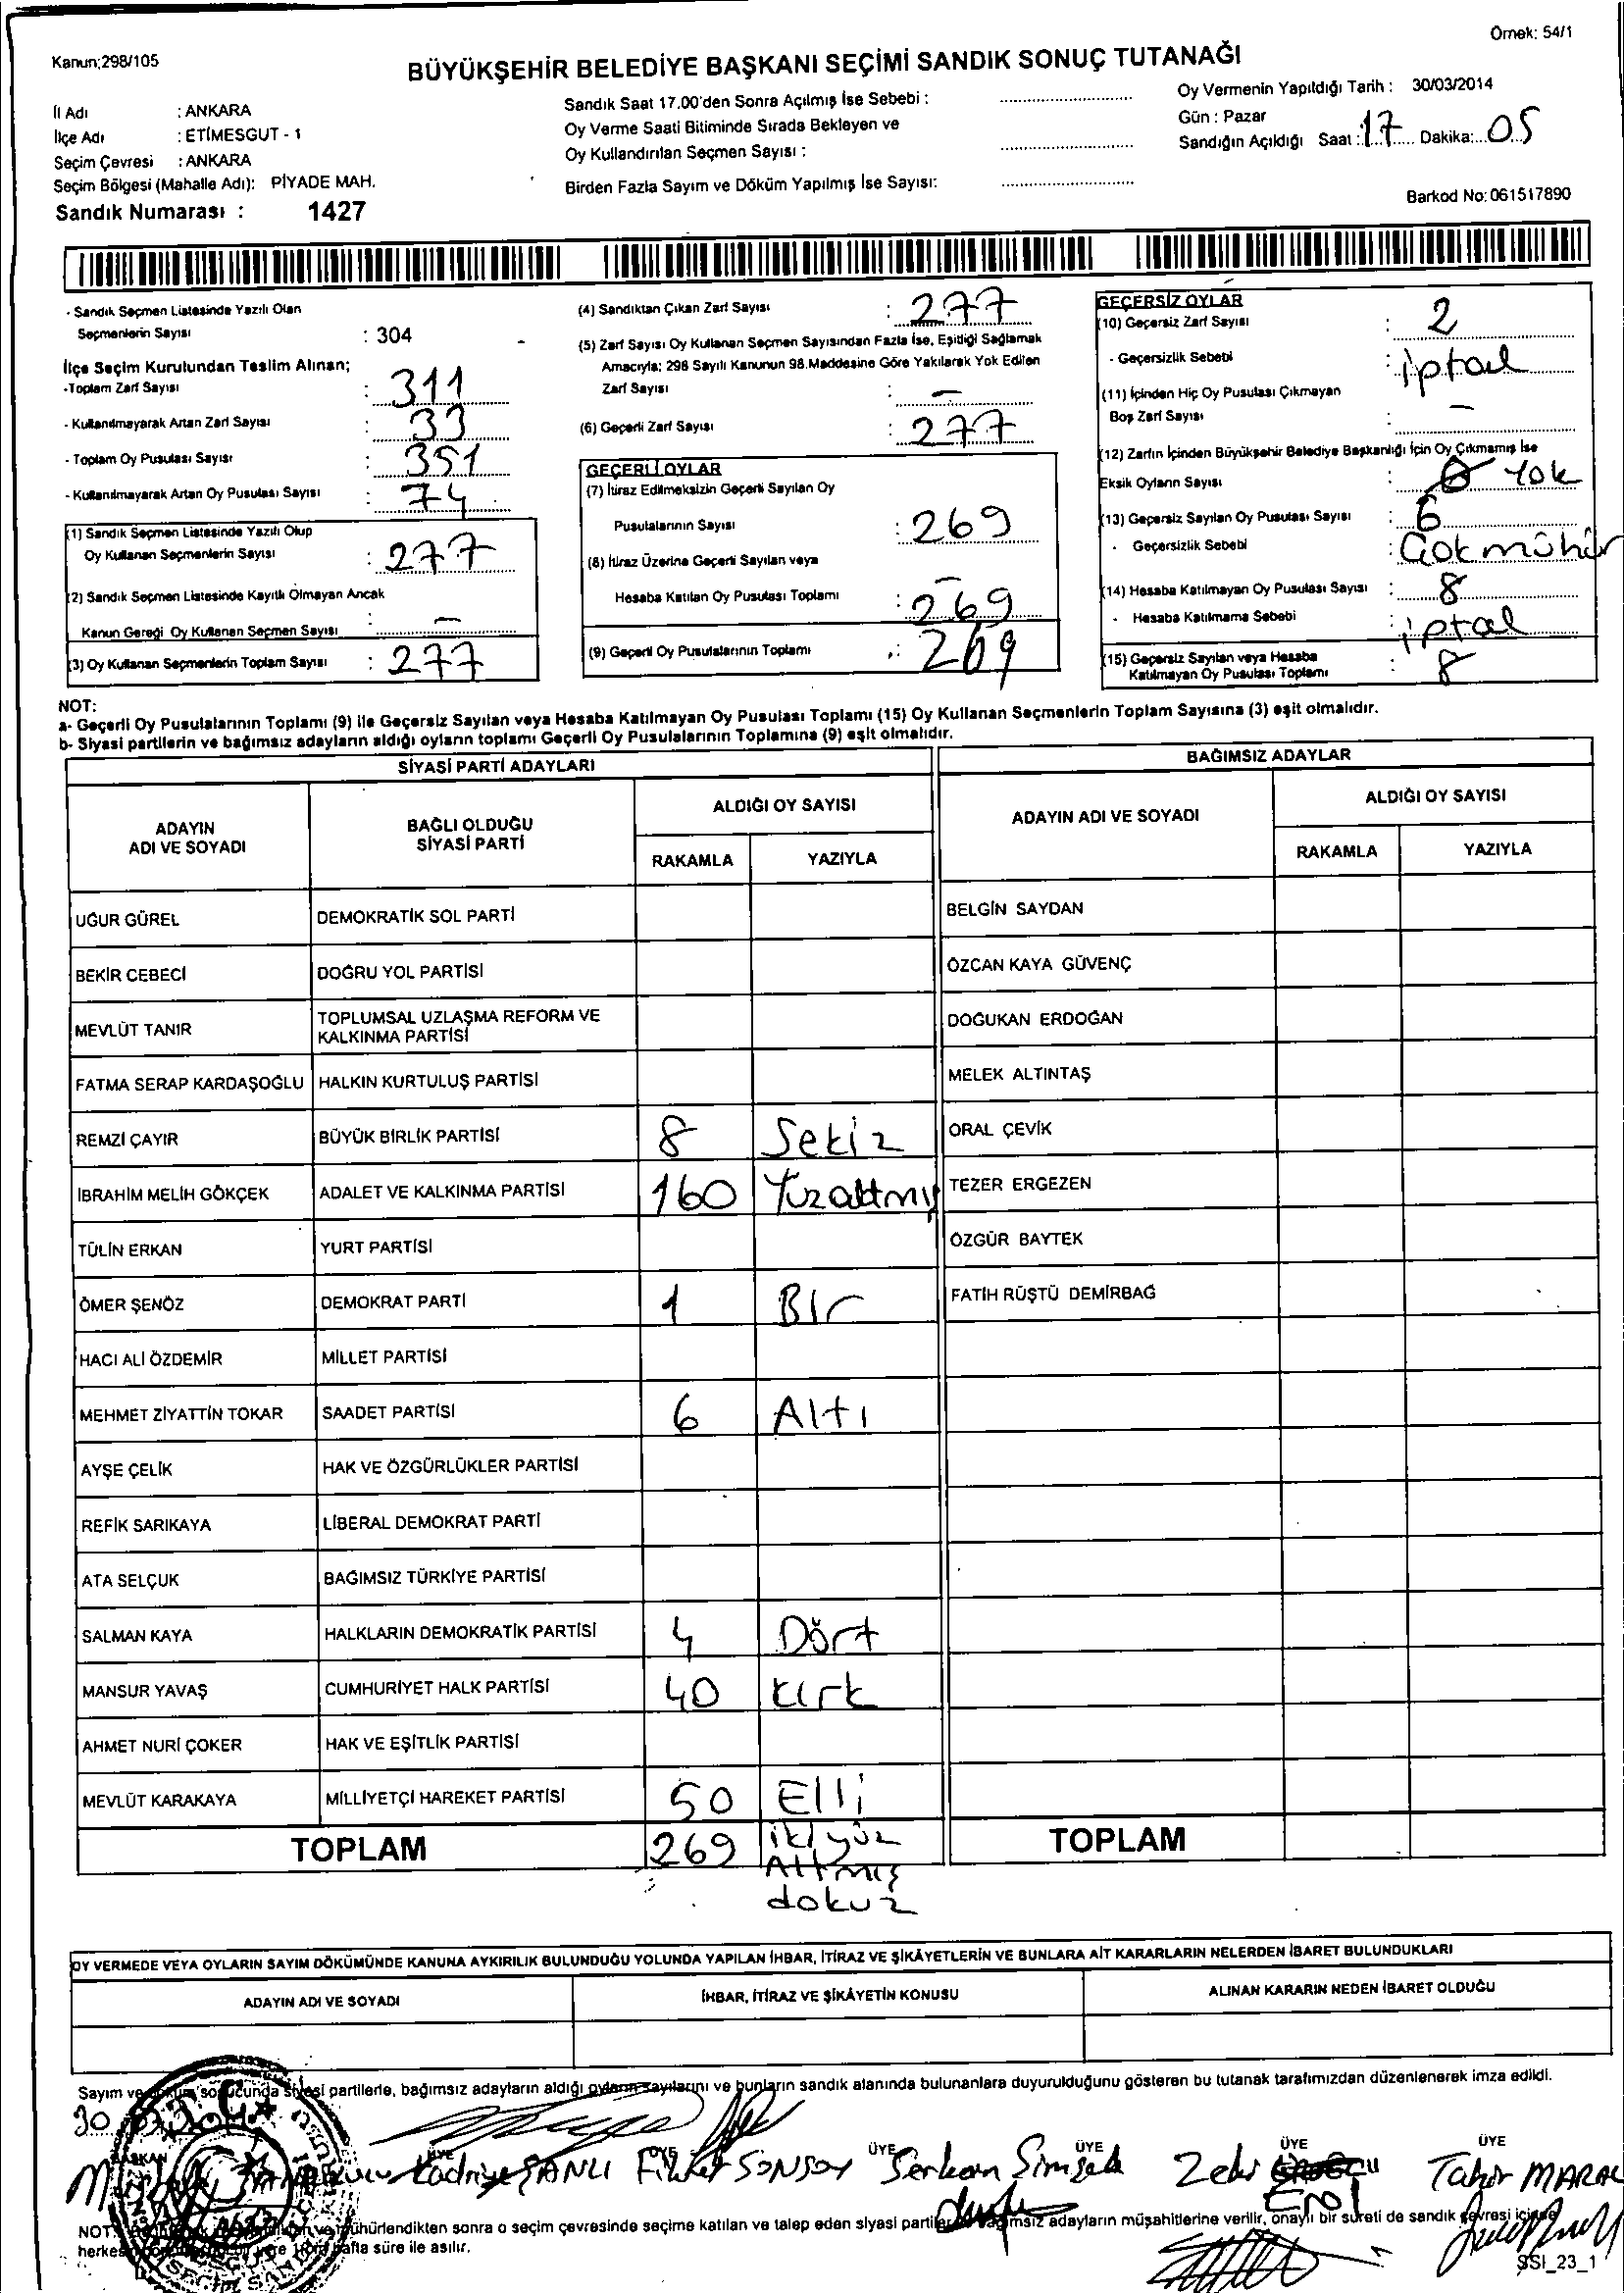 Örnek: 54/1
Kanun;298/105
BÜYÜKŞEHİR BELEDİYE BAŞKANI SEÇİMİ SANDIK SONUÇ TUTANAĞI
İl Adı : ANKARA
İlçe Adı : ETİMESGUT - 1
Seçim Çevresi : ANKARA
Seçim Bölgesi (Mahalle Adı): PİYADE MAH.
Sandık Numarası : 1427
Sandık Saat 17.00'den Sonra Açılmış İse Sebebi :
Oy Verme Saati Bitiminde Sırada Bekleyen ve
Oy Kullandırılan Seçmen Sayısı :
Birden Fazla Sayım ve Döküm Yapılmış İse Sayısı:
Oy Vermenin Yapıldığı Tarih : 30/03/2014
Gün : Pazar
Sandığın Açıldığı Saat : 17 Dakika: 05
Barkod No: 061517890
- Sandık Seçmen Listesinde Yazılı Olan
Seçmenlerin Sayısı : 304
İlçe Seçim Kurulundan Teslim Alınan;
-Toplam Zarf Sayısı : 311
- Kullanılmayarak Artan Zarf Sayısı : 33
- Toplam Oy Pusulası Sayısı : 351
- Kullanılmayarak Artan Oy Pusulası Sayısı : 74
(1) Sandık Seçmen Listesinde Yazılı Olup
Oy Kullanan Seçmenlerin Sayısı : 277
(2) Sandık Seçmen Listesinde Kayıtlı Olmayan Ancak
Kanun Gereği Oy Kullanan Seçmen Sayısı : -
(3) Oy Kullanan Seçmenlerin Toplam Sayısı : 277
(4) Sandıktan Çıkan Zarf Sayısı : 277
(5) Zarf Sayısı Oy Kullanan Seçmen Sayısından Fazla İse, Eşitliği Sağlamak
Amacıyla; 298 Sayılı Kanunun 98.Maddesine Göre Yakılarak Yok Edilen
Zarf Sayısı : -
(6) Geçerli Zarf Sayısı : 277
GEÇERLİ OYLAR
(7) İtiraz Edilmeksizin Geçerli Sayılan Oy
Pusulalarının Sayısı : 269
(8) İtiraz Üzerine Geçerli Sayılan veya
Hesaba Katılan Oy Pusulası Toplamı : 269
(9) Geçerli Oy Pusulalarının Toplamı : 269
GEÇERSİZ OYLAR
(10) Geçersiz Zarf Sayısı : 2
- Geçersizlik Sebebi : iptal
(11) İçinden Hiç Oy Pusulası Çıkmayan
Boş Zarf Sayısı : -
(12) Zarfın İçinden Büyükşehir Belediye Başkanlığı İçin Oy Çıkmamış İse
Eksik Oyların Sayısı : Yok
(13) Geçersiz Sayılan Oy Pusulası Sayısı : 6
- Geçersizlik Sebebi : Çok mühür
(14) Hesaba Katılmayan Oy Pusulası Sayısı : 8
- Hesaba Katılmama Sebebi : iptal
(15) Geçersiz Sayılan veya Hesaba
Katılmayan Oy Pusulası Toplamı : 8
NOT:
a- Geçerli Oy Pusulalarının Toplamı (9) ile Geçersiz Sayılan veya Hesaba Katılmayan Oy Pusulası Toplamı (15) Oy Kullanan Seçmenlerin Toplam Sayısına (3) eşit olmalıdır.
b- Siyasi partilerin ve bağımsız adayların aldığı oyların toplamı Geçerli Oy Pusulalarının Toplamına (9) eşit olmalıdır.
SİYASİ PARTİ ADAYLARI
ADAYIN ADI VE SOYADI BAĞLI OLDUĞU SİYASİ PARTİ ALDIĞI OY SAYISI
RAKAMLA YAZIYLA
UĞUR GÜREL DEMOKRATİK SOL PARTİ
BEKİR CEBECİ DOĞRU YOL PARTİSİ
MEVLÜT TANIR TOPLUMSAL UZLAŞMA REFORM VE KALKINMA PARTİSİ
FATMA SERAP KARDAŞOĞLU HALKIN KURTULUŞ PARTİSİ
REMZİ ÇAYIR BÜYÜK BİRLİK PARTİSİ 8 Sekiz
İBRAHİM MELİH GÖKÇEK ADALET VE KALKINMA PARTİSİ 160 Yüzaltmış
TÜLİN ERKAN YURT PARTİSİ
ÖMER ŞENÖZ DEMOKRAT PARTİ 1 Bir
HACI ALİ ÖZDEMİR MİLLET PARTİSİ
MEHMET ZİYATTİN TOKAR SAADET PARTİSİ 6 Altı
AYŞE ÇELİK HAK VE ÖZGÜRLÜKLER PARTİSİ
REFİK SARIKAYA LİBERAL DEMOKRAT PARTİ
ATA SELÇUK BAĞIMSIZ TÜRKİYE PARTİSİ
SALMAN KAYA HALKLARIN DEMOKRATİK PARTİSİ 4 Dört
MANSUR YAVAŞ CUMHURİYET HALK PARTİSİ 40 Kırk
AHMET NURİ ÇOKER HAK VE EŞİTLİK PARTİSİ
MEVLÜT KARAKAYA MİLLİYETÇİ HAREKET PARTİSİ 50 Elli
TOPLAM 269 ikiyüz
Altmış
dokuz
BAĞIMSIZ ADAYLAR
ADAYIN ADI VE SOYADI ALDIĞI OY SAYISI
RAKAMLA YAZIYLA
BELGİN SAYDAN
ÖZCAN KAYA GÜVENÇ
DOĞUKAN ERDOĞAN
MELEK ALTINTAŞ
ORAL ÇEVİK
TEZER ERGEZEN
ÖZGÜR BAYTEK
FATİH RÜŞTÜ DEMİRBAĞ
TOPLAM
OY VERMEDE VEYA OYLARIN SAYIM DÖKÜMÜNDE KANUNA AYKIRILIK BULUNDUĞU YOLUNDA YAPILAN İHBAR, İTİRAZ VE ŞİKÂYETLERİN VE BUNLARA AİT KARARLARIN NELERDEN İBARET BULUNDUKLARI
ADAYIN ADI VE SOYADI İHBAR, İTİRAZ VE ŞİKÂYETİN KONUSU ALINAN KARARIN NEDEN İBARET OLDUĞU
Sayım ve döküm sonucunda siyasi partilerle, bağımsız adayların aldığı oyların sayılarını ve bunların sandık alanında bulunanlara duyurulduğunu gösteren bu tutanak tarafımızdan düzenlenerek imza edildi.
30
T.C.
BAŞKAN ÜYE ÜYE ÜYE ÜYE ÜYE ÜYE
Kadriye ŞANLI Fikret SONSOY Serkan Şimşek Zeki Erol Tahir MARAL
NOT: mühürlendikten sonra o seçim çevresinde seçime katılan ve talep eden siyasi partiler bağımsız adayların müşahitlerine verilir, onaylı bir sureti de sandık çevresi içinde
hafta süre ile asılır.
SSI_23_1